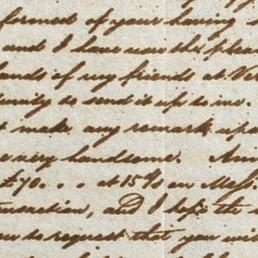 formed of your having
and I have now the pleas
hands of my friends at Ve
tunity to send it up to me.
t make any remark upo
very handsome. Am
£70 . . . at 15% on Mess.
ansaction, and I hope the
me to request that you wi